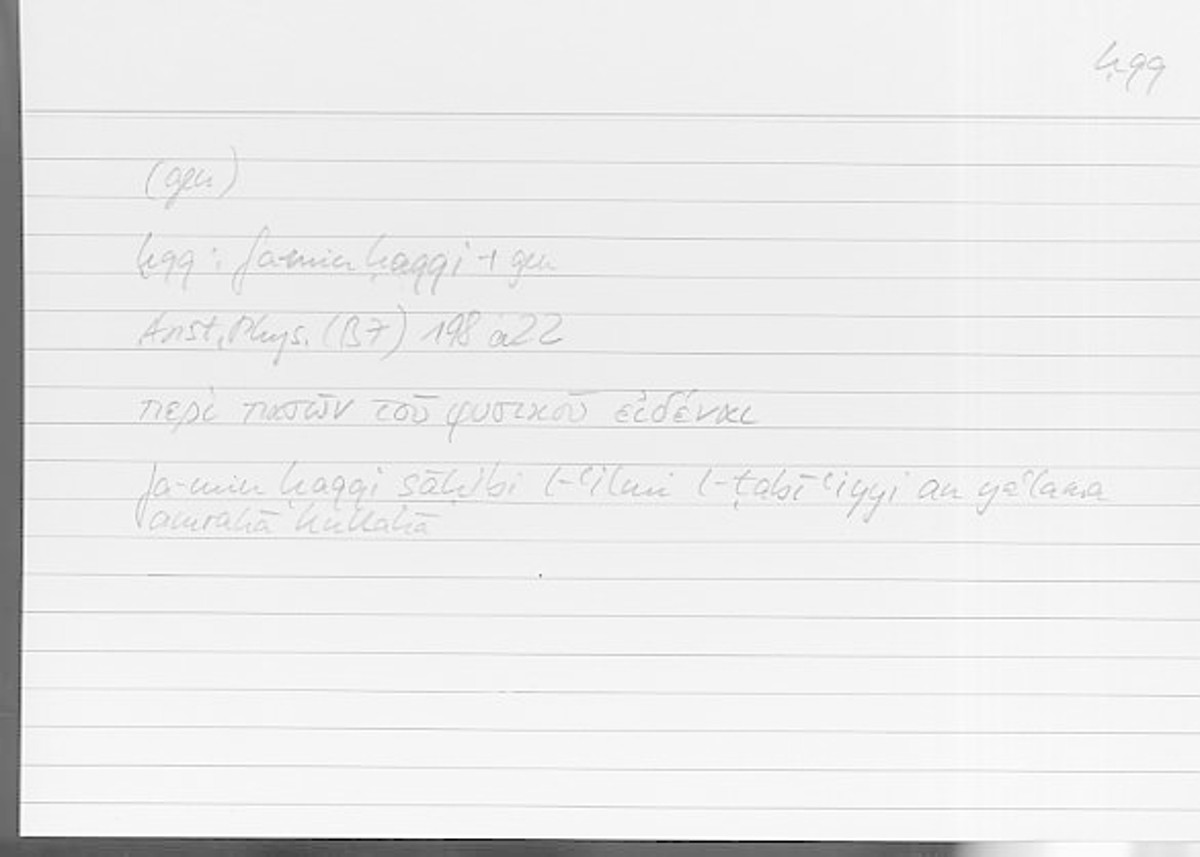 ḥqq
(gen)
ḥqq: fa-min ḥaqqi + gen
Arist. Phys. (B7) 198 a22
περὶ πασῶν τοῦ φυσικοῦ εἰδέναι
fa-min ḥaqqi ṣāḥibi l-ʿilmi l-ṭabīʿiyyi an yaʿlama
amrahā kullahā